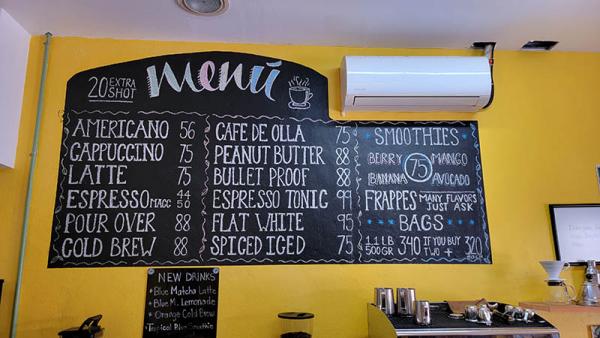 20 EXTRA SHOT
menú
AMERICANO 56
CAPPUCCINO 75
LATTE 75
ESPRESSO 44
MACC 50
POUR OVER 88
COLD BREW 88
CAFE DE OLLA 75
PEANUT BUTTER 88
BULLET PROOF 88
ESPRESSO TONIC 99
FLAT WHITE 95
SPICED ICED 75
SMOOTHIES
BERRY MANGO
75
BANANA AVOCADO
FRAPPES MANY FLAVORS JUST ASK
BAGS
1.1 LB 500GR 340 IF YOU BUY TWO + 320
NEW DRINKS
Blue Matcha Latte
Blue M. Lemonade
Orange Cold Brew
Tropical Blue Smoothie